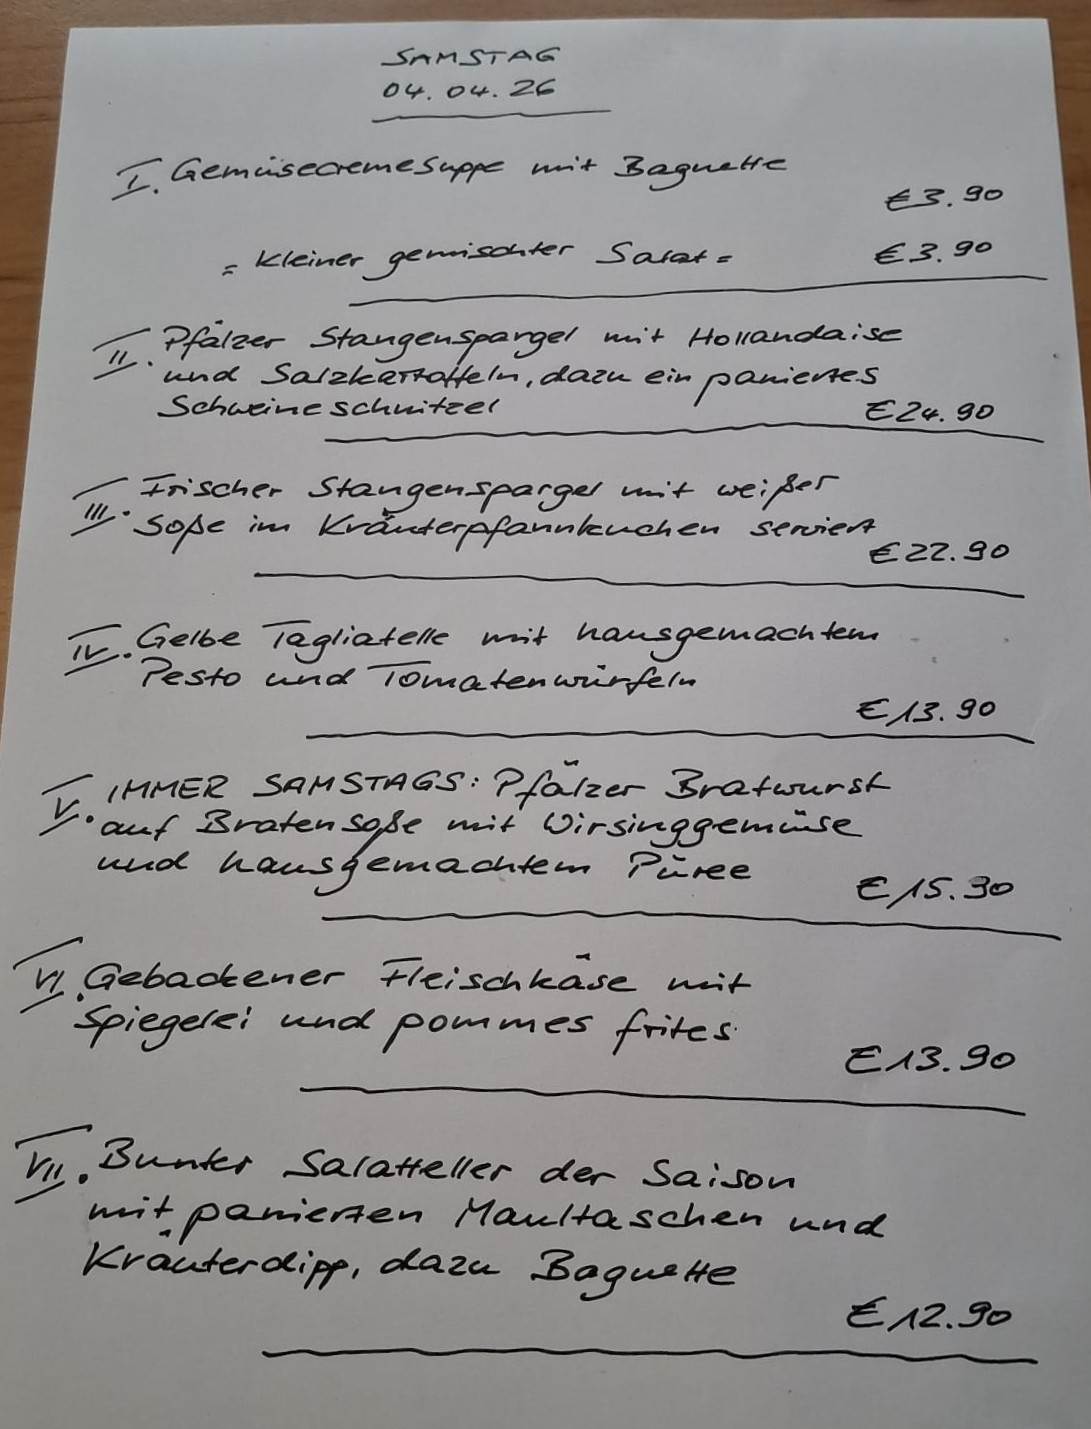 SAMSTAG
04.04.26
I. Gemüsecremesuppe mit Baguette
€3.90
= kleiner gemischter Salat =
€3.90
II. Pfälzer Stangenspargel mit Hollandaise
und Salzkartoffeln, dazu ein paniertes
Schweineschnitzel
€24.90
III. Frischer Stangenspargel mit weißer
Soße im Kräuterpfannkuchen serviert
€22.90
IV. Gelbe Tagliatelle mit hausgemachtem
Pesto und Tomatenwürfeln
€13.90
V. IMMER SAMSTAGS: Pfälzer Bratwurst
auf Bratensoße mit Wirsinggemüse
und hausgemachtem Püree
€15.90
VI. Gebackener Fleischkäse mit
Spiegelei und pommes frites
€13.90
VII. Bunter Salatteller der Saison
mit panierten Maultaschen und
Kräuterdipp, dazu Baguette
€12.90